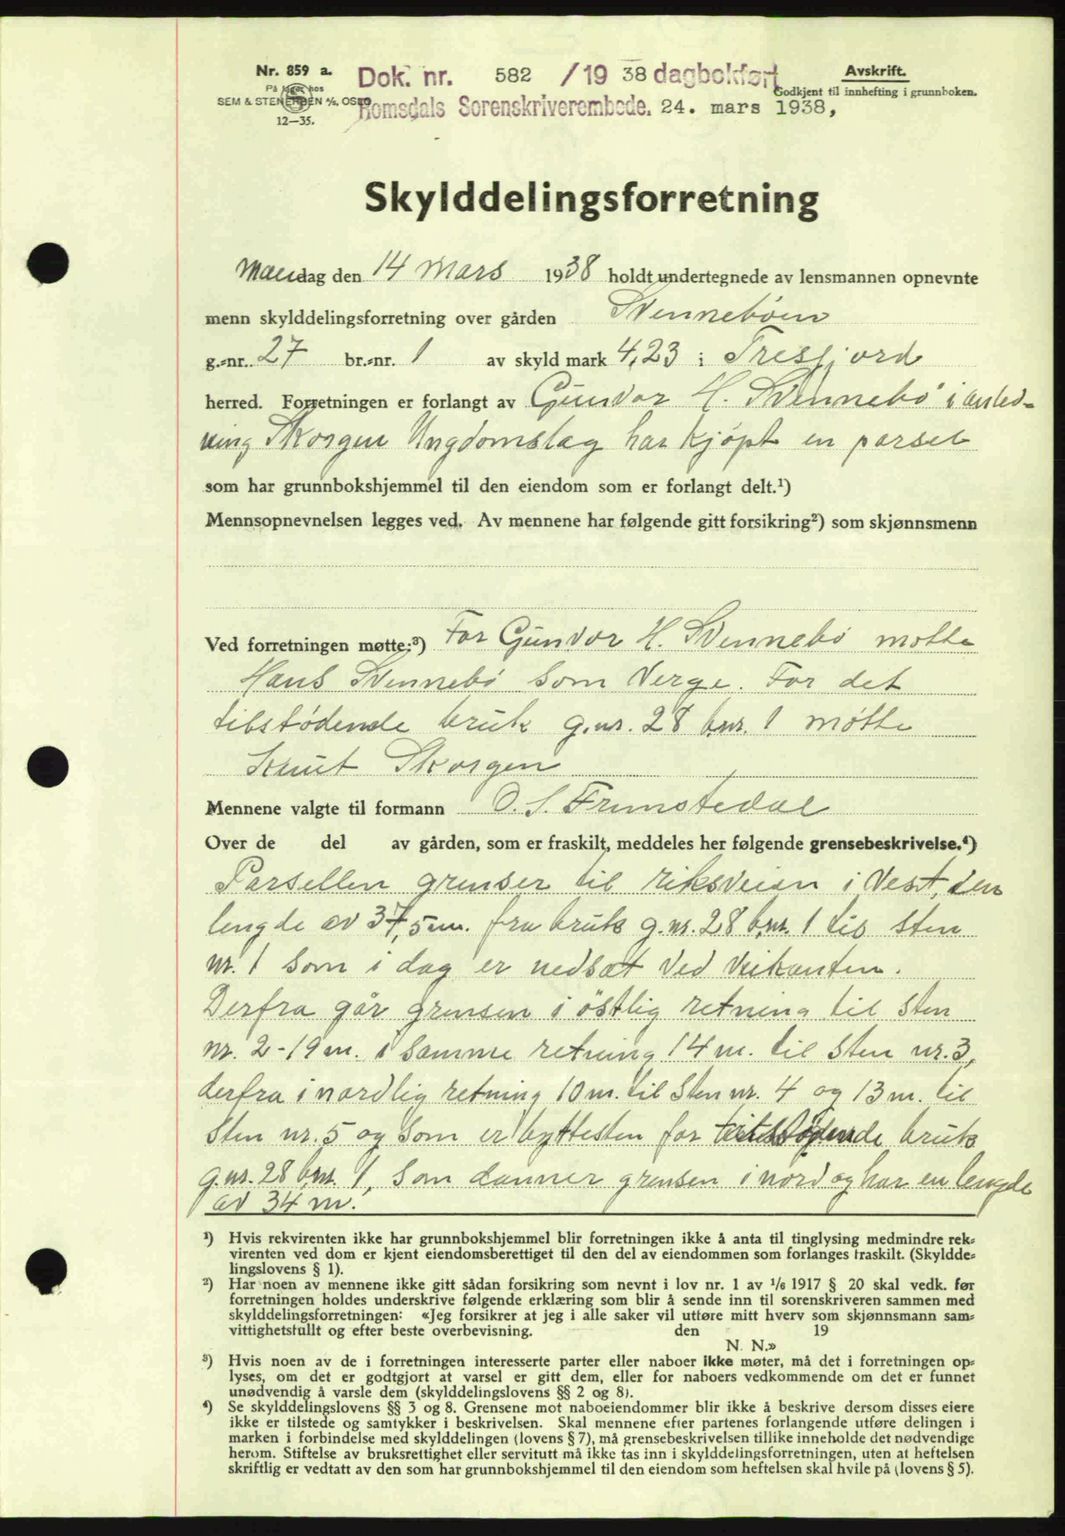 Nr. 859 a.
På lager hos
SEM & STENERSEN A/S, OSLO
12—35.
Dok. nr. 582 /19 38 dagbokført
Romsdals Sorenskriverembede. 24. mars 1938,
Avskrift.
Godkjent til innhefting i grunnboken.
Skylddelingsforretning
Mandag den 14 Mars 1938 holdt undertegnede av lensmannen opnevnte
menn skylddelingsforretning over gården Svennebøen
g.-nr. 27 br.-nr. 1 av skyld mark 4,23 i Tresfjord
herred. Forretningen er forlangt av Gunvor H. Svennebø i anled-
ning Skorgen Ungdomslag har kjøpt en parsel
som har grunnbokshjemmel til den eiendom som er forlangt delt.¹)
Mennsopnevnelsen legges ved. Av mennene har følgende gitt forsikring²) som skjønnsmenn
Ved forretningen møtte:³) For Gunvor H. Svennebø møtte
Hans Svennebø som Verge. For det
tilstødende bruk g.nr. 28 b.nr. 1 møtte
Knut Skorgen
Mennene valgte til formann O. S. Frimstedal
Over de del av gården, som er fraskilt, meddeles her følgende grensebeskrivelse.⁴)
Parsellen grenser til riksveien i Vest, den
lengde av 37,5m. fra bruk g.nr. 28 b.nr. 1 til sten
nr. 1 som i dag er nedsat ved veikanten.
Derfra går grensen i østlig retning til sten
nr. 2 - 19m. i samme retning 14m. til sten nr. 3,
derfra i nordlig retning 10m. til sten nr. 4 og 13m. til
sten nr. 5 og som er byttesten for tilstødende bruk
g.nr. 28 b.nr. 1, som danner grensen i nord og har en lengde
av 34 m.
¹) Hvis rekvirenten ikke har grunnbokshjemmel blir forretningen ikke å anta til tinglysing medmindre rek-
virenten ved dom er kjent eiendomsberettiget til den del av eiendommen som forlanges fraskilt. (Skyldde-
lingslovens § 1).
²) Har noen av mennene ikke gitt sådan forsikring som nevnt i lov nr. 1 av 1/6 1917 § 20 skal vedk. før
forretningen holdes underskrive følgende erklæring som blir å sende inn til sorenskriveren sammen med
skylddelingsforretningen: «Jeg forsikrer at jeg i alle saker vil utføre mitt hverv som skjønnsmann sam-
vittighetsfullt og efter beste overbevisning. den 19
N. N.»
³) Hvis noen av de i forretningen interesserte parter eller naboer ikke møter, må det i forretningen op-
lyses, om det er godtgjort at varsel er gitt dem, eller for naboers vedkommende om det er funnet
unødvendig å varsle dem (skylddelingslovens §§ 2 og 8).
⁴) Se skylddelingslovens §§ 3 og 8. Grensene mot naboeiendommer blir ikke å beskrive dersom disses eiere
ikke er tilstede og samtykker i beskrivelsen. Skal mennene efter partenes forlangende utføre delingen i
marken i forbindelse med skylddelingen (lovens § 7), må grensebeskrivelsen tillike inneholde det nødvendige
herom. Stiftelse av bruksrettighet eller servitutt må ikke tas inn i skylddelingsforretningen, uten at heftelsen
skriftlig er vedtatt av den som har grunnbokshjemmel til den eiendom som heftelsen skal hvile på (lovens § 5).